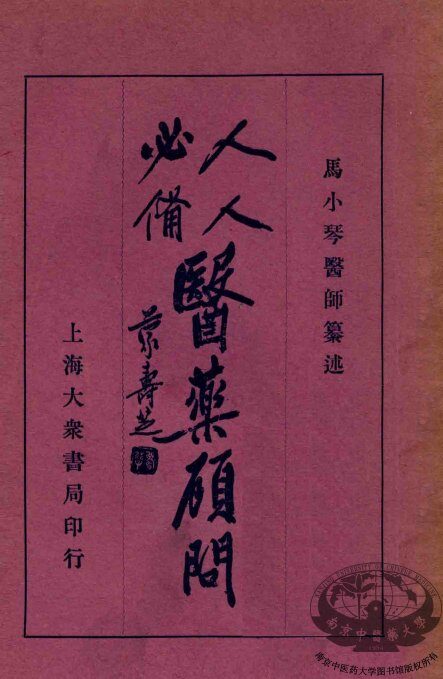 馬小琴醫師纂述
人人
必備
醫藥顧問
蔡壽芝
上海大衆書局印行
南京中醫藥大學
1954
南京中医药大学图书馆版权所有